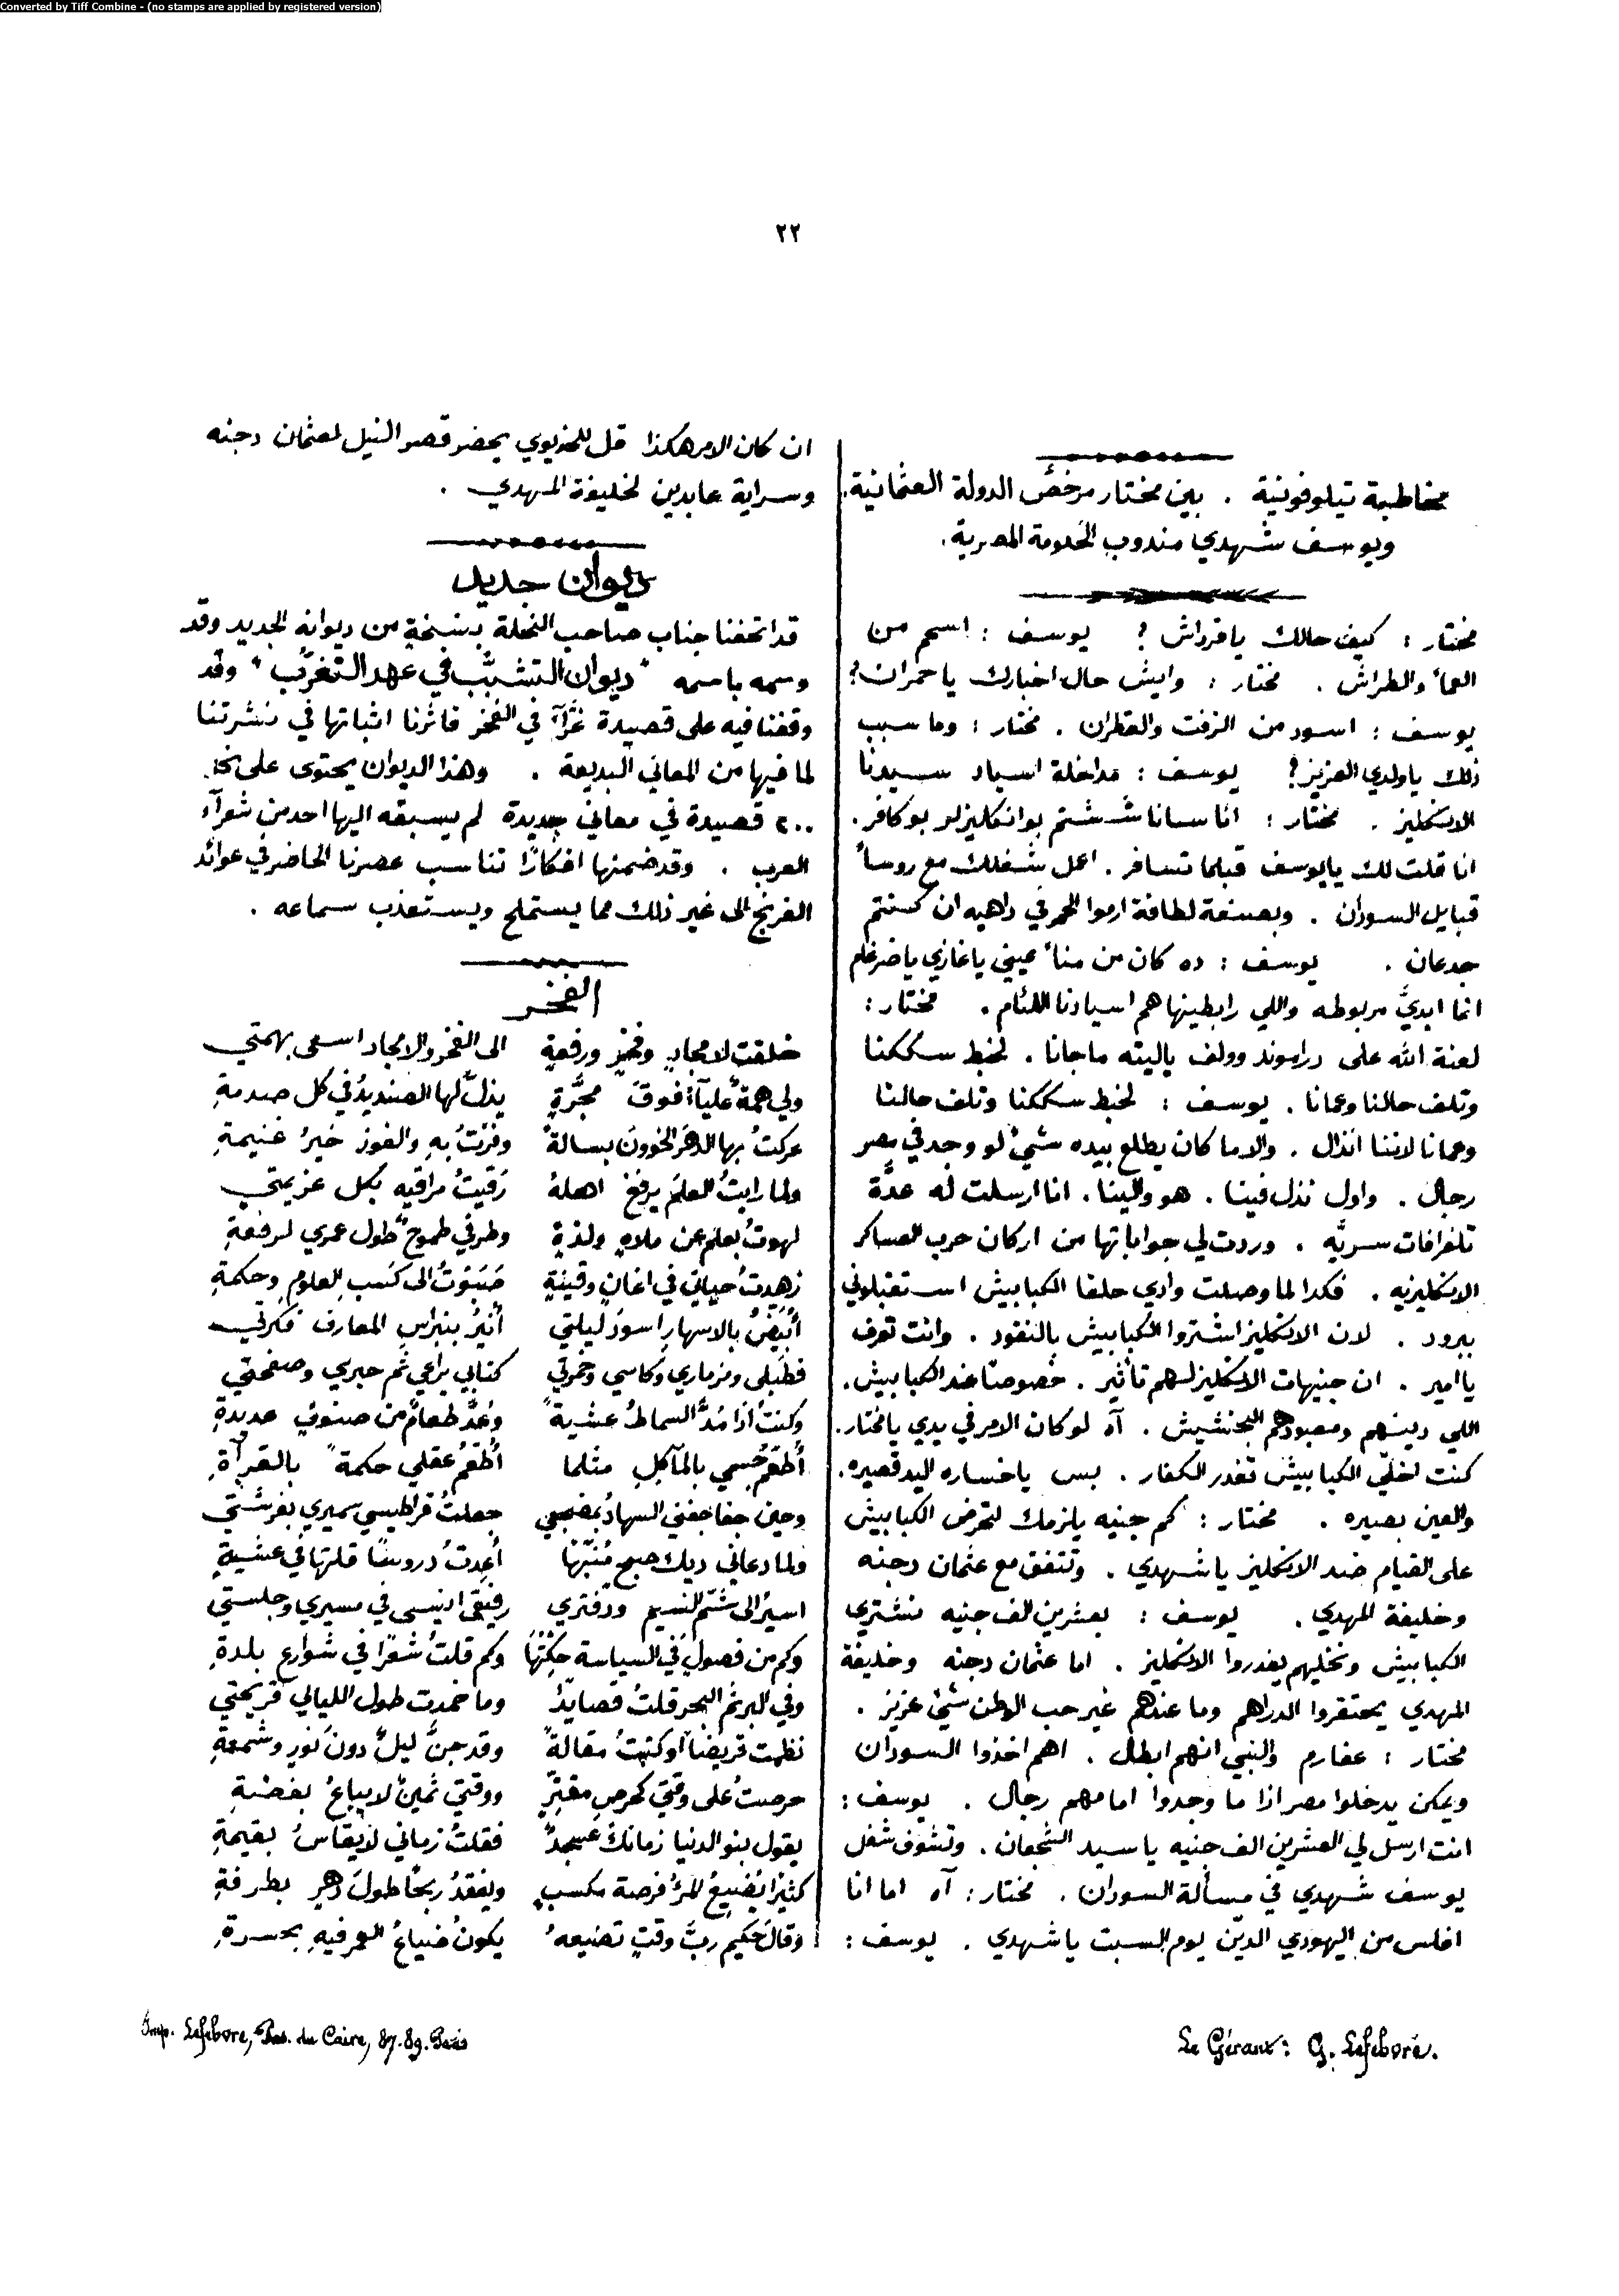 Converted by Tiff Combine - (no stamps are applied by registered version)
٢٢
مخاطبة تيلوفونية . بين مختار مرخص الدولة العثمانية.
ويوسف شهدي مندوب الحكومة المصرية.
مختار : كيف حالك يا قرداش ? يوسف : اسم من
العمأ والطراش . مختار : وايش حال اخبارك يا حمران ?
يوسف : اسود من الزفت والقطران . مختار : وما سبب
ذلك يا ولدي العزيز ? يوسف : مداخلة اسياد سيدنا
الانكليز . مختار : انا سانا ششتم بو انكليزلر بو كافر.
انا قلت لك يا يوسف قبلما تسافر . اعمل شغلك مع روسأ
قبايل السودان . وبصنعة لطافة ارموا الحمر في داهيه ان كنتم
جدعان . يوسف : ده كان من منأ عيني يا غازي يا ضرغام
انما ايديّ مربوطه واللي رابطينها هم اسيادنا اللئام . مختار :
لعنة الله على دراموند وولف ياليته ما جانا . لخبط سككنا
وتلف حالنا وعمانا . يوسف : لخبط سككنا وتلف حالنا
وعمانا لاننا انذال . والا ما كان يطلع بيده شيٌ لو وجد في مصر
رجال . واول نذل فينا . هو والينا . انا ارسلت له عدّة
تلغرافات سريّه . وردت لي جواباتها من اركان حرب العساكر
الانكليزيه . فكدا لما وصلت وادي حلفا الكبابيش استقبلوني
ببرود . لان الانكليز اشتروا الكبابيش بالنقود . وانت تعرف
يا امير . ان جنيهات الانكليز لهم تأثير . خصوصًا عند الكبابيش .
اللي دينهم ومعبودهم البخشيش . آه لو كان الامر في يدي يا مختار.
كنت اخلّي الكبابيش تغدر الكفار . بس يا خساره اليد قصيره.
والعين بصيره . مختار : كم جنيه يلزمك لتحرض الكبابيش
على القيام ضد الانكليز يا شهدي . وتتفق مع عثمان دجنه
وخليفة المهدي . يوسف : بعشرين الف جنيه نشتري
الكبابيش ونخليهم يغدروا الانكليز . اما عثمان دجنه وخليفة
المهدي يحتقروا الدراهم وما عندهم غير حب الوطن شيٌ عزيز .
مختار : عفارم والنبي انهم ابطال . اهم اخذوا السودان
ويمكن يدخلوا مصر اذا ما وجدوا امامهم رجال . يوسف :
انت ارسل لي العشرين الف جنيه يا سيد الشجعان . وتشوف شغل
يوسف شهدي في مسألة السودان . مختار : آه اما انا
افلس من اليهودي الديّن يوم السبت يا شهدي . يوسف :
ان كان الامر هكذا قل للخديوي يحضر قصر النيل لعثمان دجنه
وسراية عابدين لخليفة المهدي .
ديوان جديد
قد اتحفنا جناب صاحب النحلة بنسخةٍ من ديوانه الجديد وقد
وسمه باسمه " ديوان التشبّب في عهد التغرّب " وقد
وقفنا فيه على قصيدة غرّآء في الفخر فاثرنا اثباتها في نشرتنا
لما فيها من المعاني البديعة . وهذا الديوان يحتوى على نحو
٢٠٠ قصيدة في معاني جديدة لم يسبقه اليها احد من شعرآء
العرب . وقد ضمنها افكارًا تناسب عصرنا الحاضر في عوائد
الفرنج الى غير ذلك مما يستملح ويستعذب سماعه .
الفخر
خلقت لامجادٍ وفخرٍ ورفعةٍ الى الفخر والامجاد اسعى بهمتي
ولي همةٌ عليآءُ فوق مجرّةٍ يذلّ لها الصنديدُ في كل صدمةِ
عركتُ بها الدهرَ الخوونَ بسالةً وفزتُ بهِ والفوز خيرُ غنيمةِ
ولما رايتُ العلمَ يرفعُ اهلهُ رَقيتُ مراقيهِ بكل عزيمتي
لهوتُ بعلمٍ عن ملاهٍ ولذةٍ وطرفي طموحٌ طول عمري لرفعةِ
زهدتُ حياتي في اغانٍ وقينةٍ صَبَوتُ الى كسب العلوم وحكمةِ
أبَيّضُ بالاسهارِ اسودَ ليلتي أنيرُ بنبراسِ المعارف فكرتي
فطبلى ومزماري وكاسي وخمرتي كتابي يراعي ثم حبري وصفحتي
وكنتُ اذا مُدَّ السماطُ عشيةً وعُدّ طعامٌ من صنوفٍ عديدةِ
أُطعّمُ جسمي بالمآكلِ مثلما أُطعّمُ عقلي حكمةً بالقرآةِ
وحين جفا جفني السهادُ بمضجعي جعلتُ قراطيسي سميري بفرشتي
ولما دعاني ديك صبحٍ مُنبّهًا أعِدتُ دروسًا قلتها في عشيةِ
اسيرُ الى شمّ النسيم ودفتري رفيقي انيسي في مسيري وجلستي
وكم من فصولٍ في السياسة حكتُها وكم قلتُ شعرًا في شوارع بلدةِ
وفي البر ثم البحر قلتُ قصايدًا وما خمدت طول الليالي قريحتي
نظمت قريضاً او كتبتُ مقالةً وقد جنَّ ليلٌ دون نورٍ وشمعةِ
حرصتُ على وقتي كحرصِ مقتِّرٍ ووقتي ثمينٌ لا يباعُ بفضةِ
يقول بنو الدنيا زمانكَ عسجدٌ فقلتُ زماني لا يقاسُ بقيمةِ
كثيرًا يُضيعُ المرُ فرصة مكسبٍ ويفقدُ ربحًا طولَ دهرٍ بطرفةِ
وقالَ حكيمٌ ربَّ وقتٍ تضيعهُ يكونُ ضياعُ العمر فيهِ بحسرةِ
Le Gérant : G. Lefebvre.
Imp. Lefebvre, Pas. du Caire, 87-89. Paris